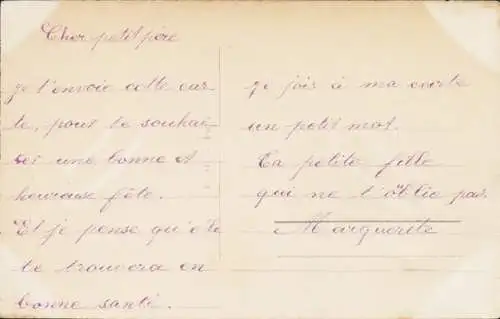 Cher petit père
je t'envoie cette car
te, pour te souhai
ter une bonne et
heureuse fête.
Et je pense qu'elle
te trouvera en
bonne santé.
je jois à ma carte
un petit mot.
Ta petite fille
qui ne t'oublie pas
Marguerite